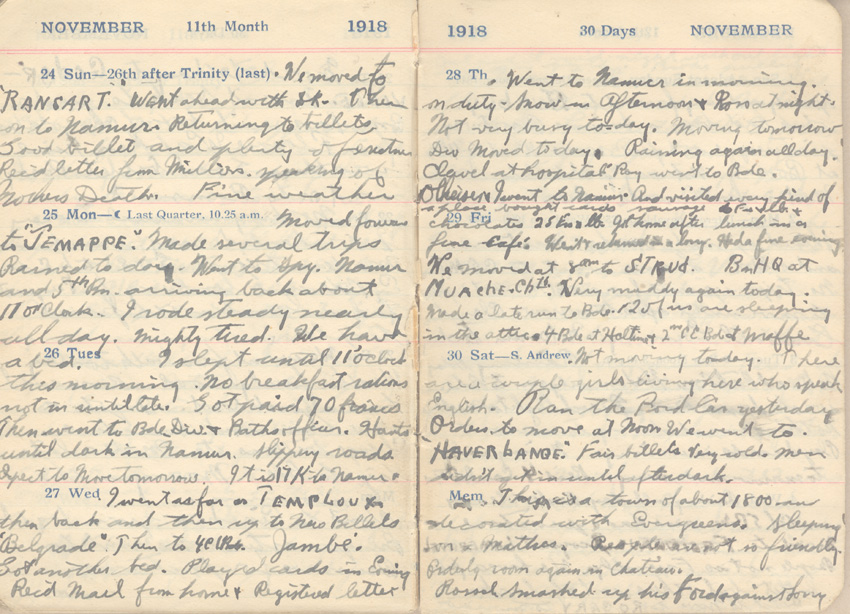 NOVEMBER 11th Month 1918
24 Sun—26th after Trinity (last). We moved to
"RANSART." Went ahead with Then
on to Namur. Returning to billets.
Good billet and plenty of
Rec'd letter from speaking of
Death. Fine weather
25 Mon—☾ Last Quarter, 10.25 a.m. Moved forward
to "JEMAPPE." Made several trips
Rained to day. Went to Spy. Namur
and 5th Bn. arriving back about
11 o'clock. I rode steady nearly
all day. Mighty tired. We have
a bed.
26 Tues I slept until 11 o'clock
this morning. No breakfast rations
not in until late. Got paid 70 francs
Then went to Bde, Div. + Baths officer.
until dark in Namur. Slippery roads
Expect to Move tomorrow. It is 17 K to Namur.
27 Wed I went as far as TEMPLOUX
then back and then up to New Billets
"Belgrade". Then to Jambé.
Got another bed. Played cards in Evening
Rec'd Mail from home + Registered letter
1918 30 Days NOVEMBER
28 Th. Went to Namur in morning.
on duty. in afternoon + Ross at night.
Not very busy to-day. Moving tomorrow
Div Moved to day. Raining again all day.
at hospital. Roy went to Bde.
I went to Namur. And visited every kind of
a place bought cards
29 Fri
chocolates Got home after lunch in a
fine Café. Went + returned in a lorry. Had a fine evening
We moved at 8 am to STRUD. Bn HQ at
Very muddy again today.
Made a late run to Bde. 12 of us are sleeping
in the attic. 4 Bde at Haltin + 2nd Bde at
30 Sat—S. Andrew. Not moving to day. There
are a couple girls living here who speak
English. Ran the Ford Car yesterday
Orders to move at Noon We went to.
"HAVERLANGE." Fair billets Very cold. Men
didn't get in until after dark.
Mem. This is a town of about 1800 an
decorated with Evergreens. Sleeping
on a People are not so friendly.
Orderly room again in Chateau.
smashed up his Ford against lorry